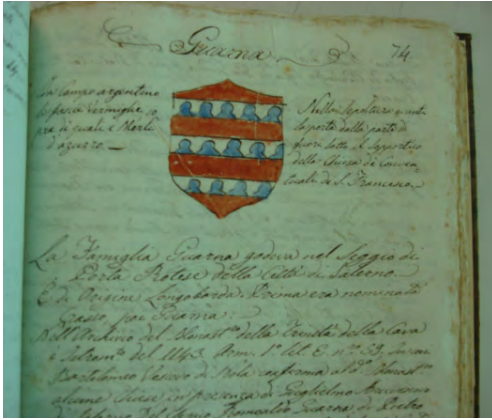 Guarna
74
In campo argentino
fascie vermiglie, so
pra i quali i Merli
d'azzurro.
Nella sepoltura avanti
la porta dalla parte di
fuori sotto il supportico
della Chiesa di Conven
tuali di S. Francesco.
La Famiglia Guarna godeva nel Seggio di
Porta Rotese della Città di Salerno
È di Origine Longobarda. Prima era nominata
Grasso, poi Guarna:
Nell'Archivio del Monast.o della Trinità della Cava
Istrom.to del 1143. Arm. 1.o lit. E. n.o 33.
Bartolomeo Vescovo di conferma al d.o Monast.o
alcune Chiese in presenza di Guglielmo Arcivescovo
di Salerno